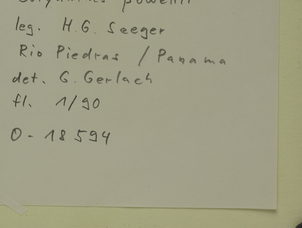 powellii
leg. H.G. Seeger
Rio Piedras / Panama
det. G. Gerlach
fl. 1/90
O-18594